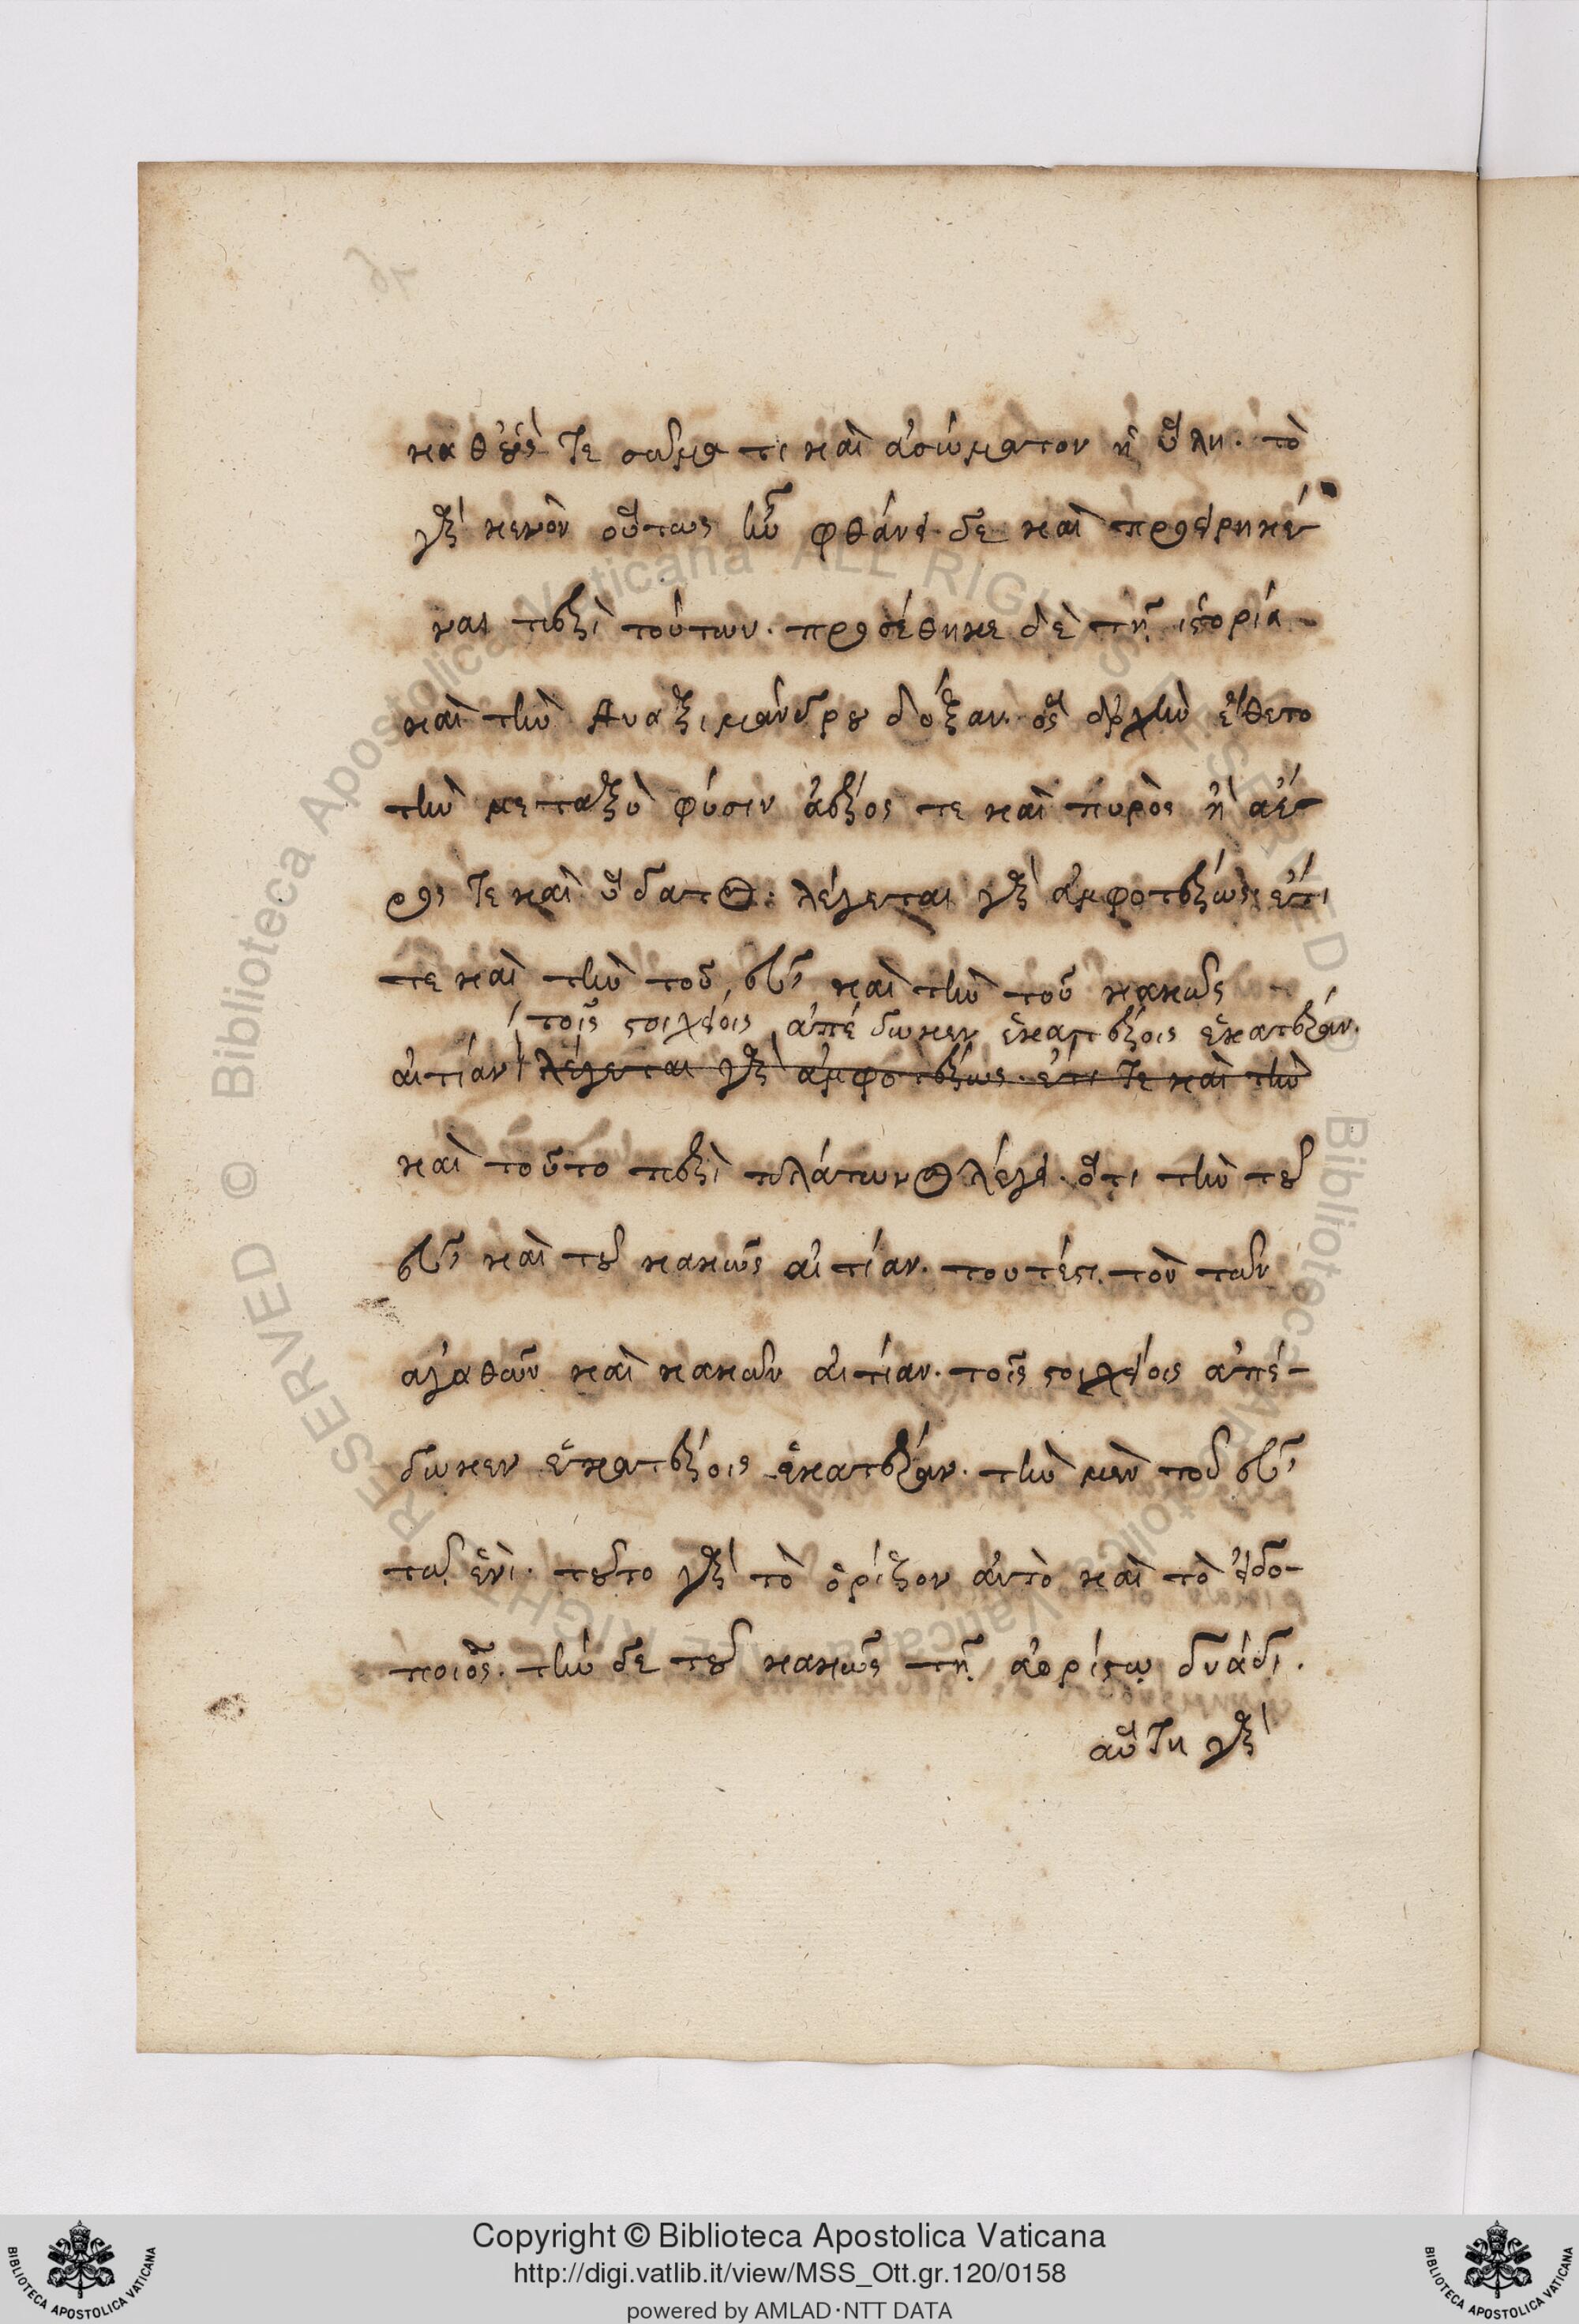 καθεῖς τε σῶμά τι καὶ ἀσώματον ἡ ὕλη. τὸ
γὰρ κενὸν οὕτως ἦν φθάνει δὲ καὶ προειρηκέ
ναι περὶ τούτων. προσέθηκε δὲ τῇ ἱστορίᾳ
καὶ τὴν Ἀναξιμάνδρου δόξαν. ὃς ἀρχὴν ἔθετο
τὴν μεταξὺ φύσιν ἀέρος τε καὶ πυρὸς ἢ αέ-
ρος τε καὶ ὕδατος: λέγεται γὰρ ἀμφοτέρως ἔτι
τε καὶ τὴν τοῦ εὖ καὶ τὴν τοῦ κακῶς
τοῖς στοιχείοις ἀπέδωκεν ἑκατέροις ἑκατέραν.
αἰτίαν λέγεται γὰρ ἀμφοτέρως. ἔτι τε καὶ τὴν
καὶ τοῦτο περὶ πλάτωνος λέγει. ὅτι τὴν τοῦ
εὖ καὶ τοῦ κακῶς αἰτίαν. τουτέστι τὸν τῶν
ἀγαθῶν καὶ κακῶν αἰτίαν. τοῖς στοιχείοις ἀπέ-
δωκεν ἑκατέροις ἑκατέραν. τὴν μὲν τοῦ εὖ
τῷ ἑνὶ. τοῦτο γὰρ τὸ ὁρίζον αὐτὸ καὶ τὸ εἰδο-
ποιὸς. τὴν δὲ τοῦ κακῶς τῇ ἀορίστῳ δυάδι.
αὕτη γὰρ
Copyright © Biblioteca Apostolica Vaticana
http://digi.vatlib.it/view/MSS_Ott.gr.120/0158
powered by AMLAD·NTT DATA
BIBLIOTECA APOSTOLICA VATICANA
BIBLIOTECA APOSTOLICA VATICANA
© Biblioteca Apostolica Vaticana ALL RIGHTS RESERVED
© Biblioteca Apostolica Vaticana ALL RIGHTS RESERVED